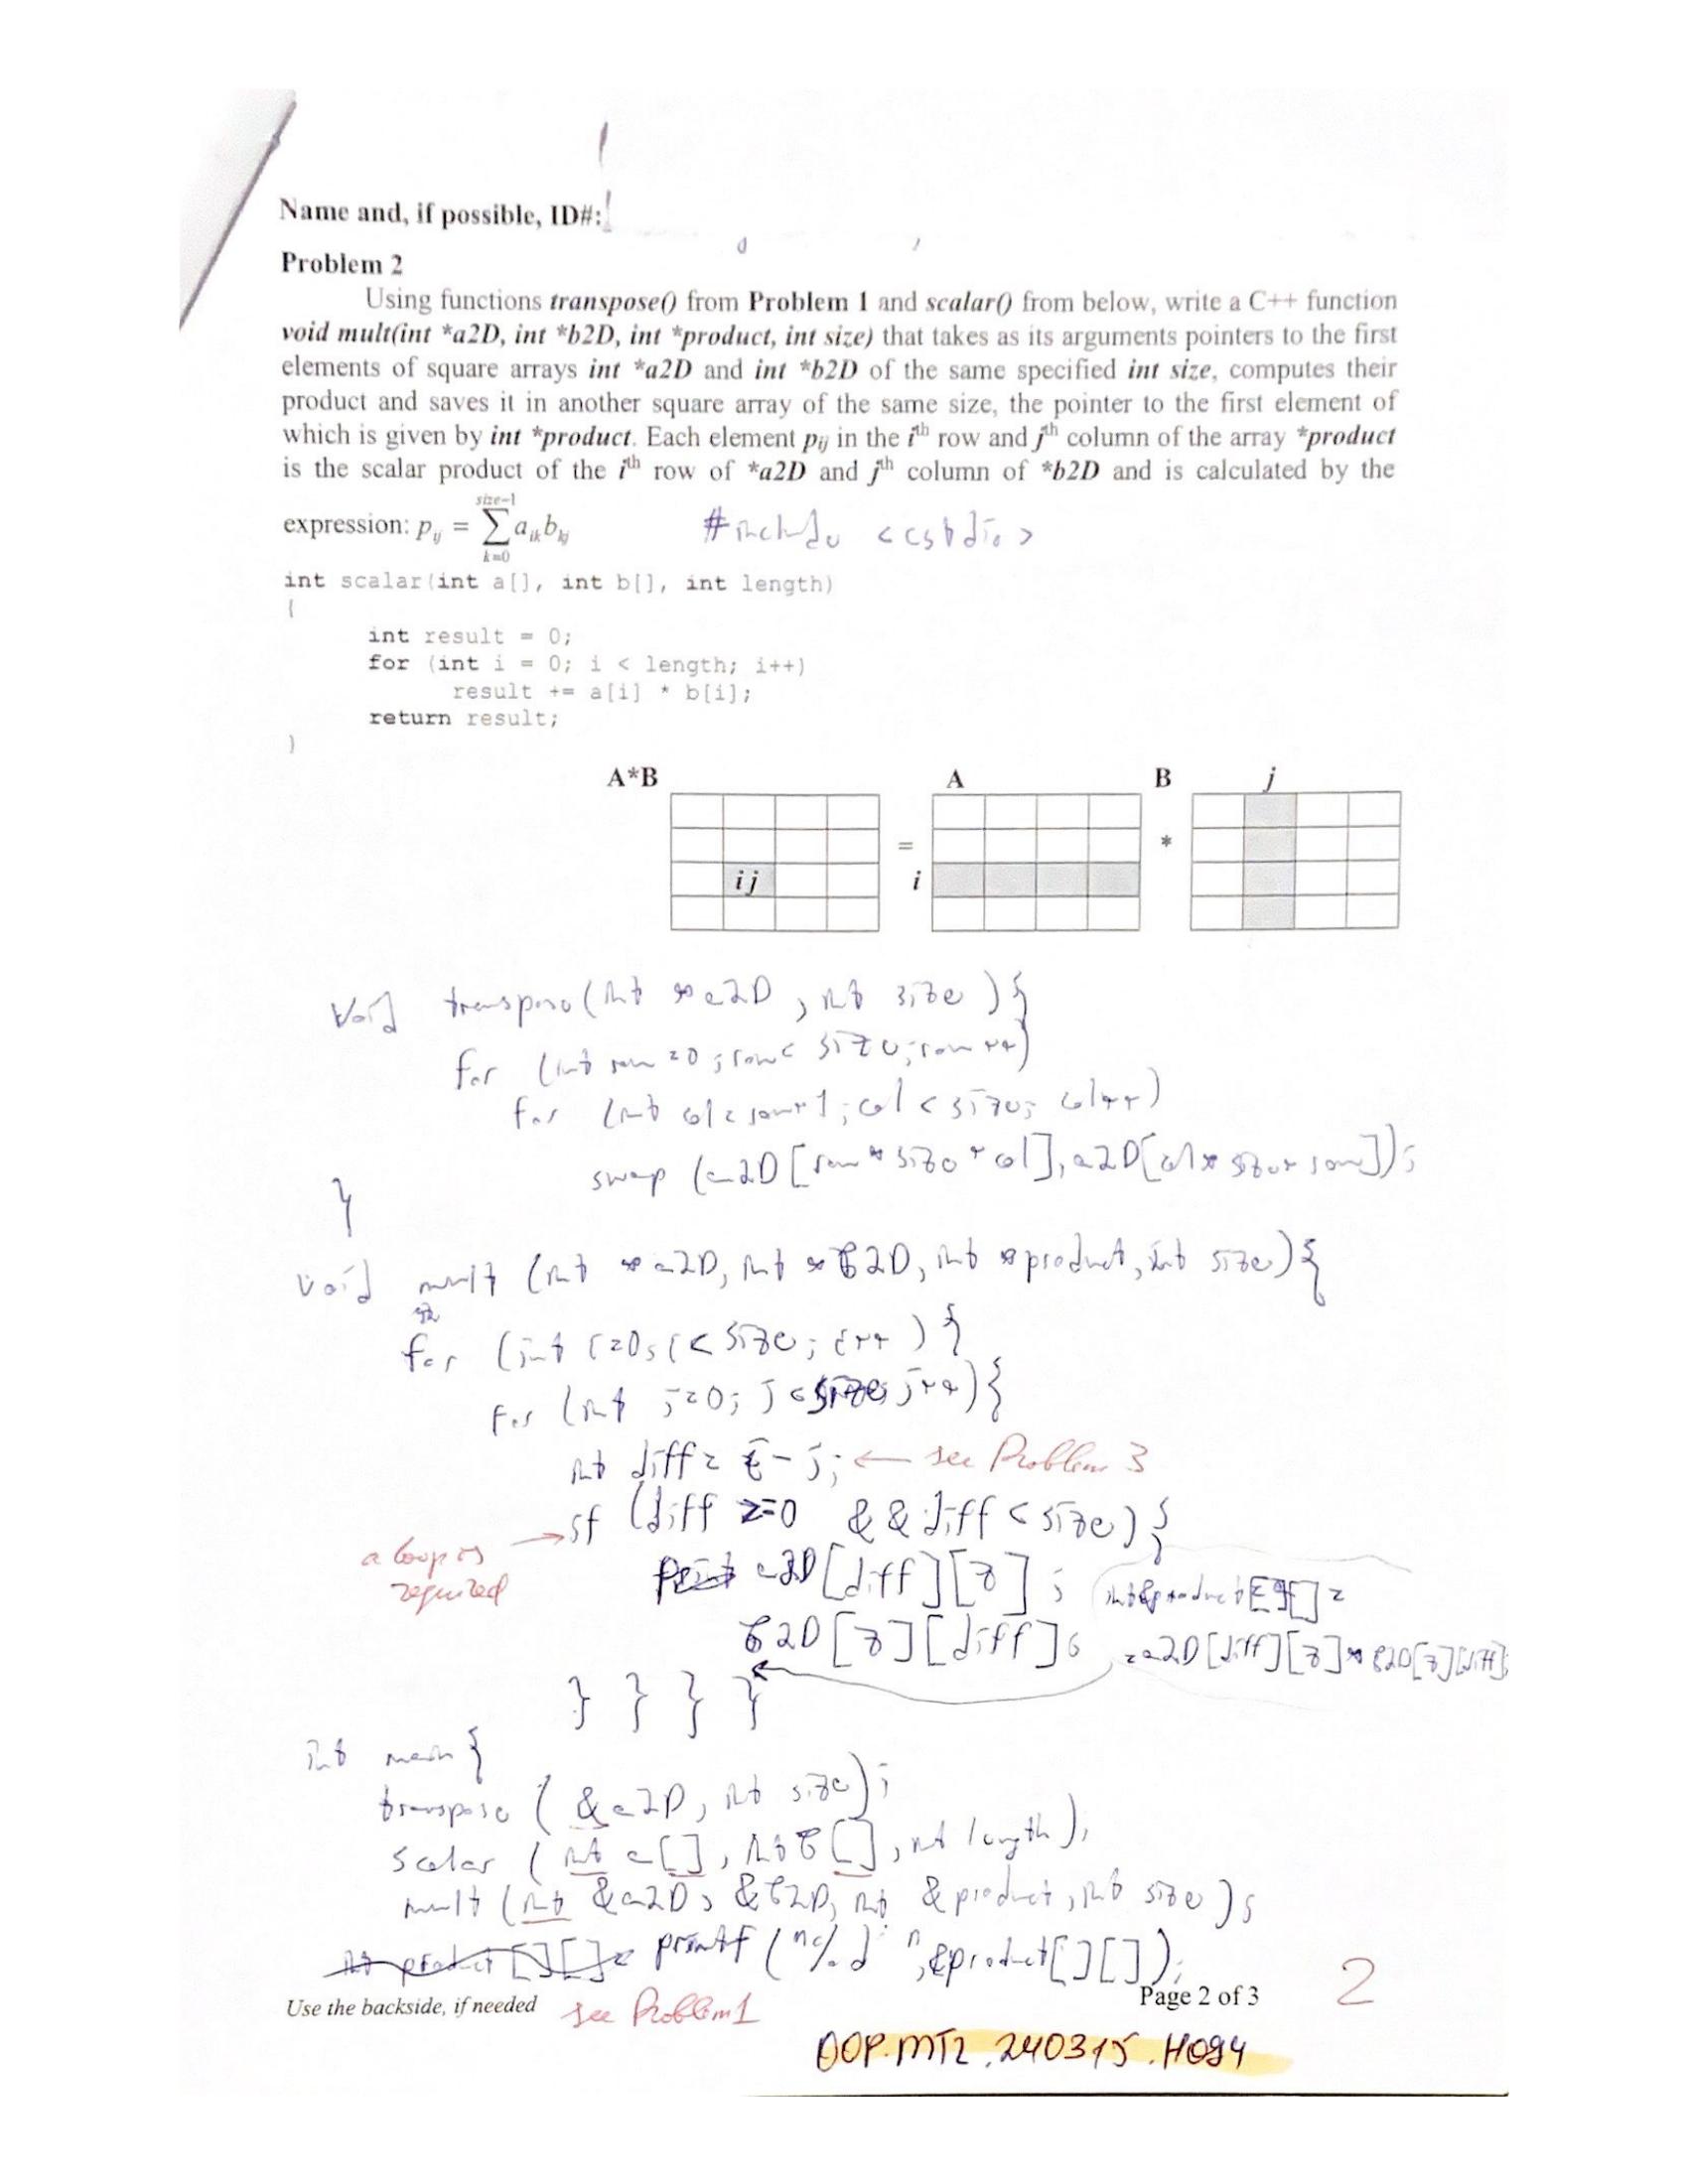 Name and, if possible, ID#:
Problem 2
Using functions transpose() from Problem 1 and scalar() from below, write a C++ function
void mult(int *a2D, int *b2D, int *product, int size) that takes as its arguments pointers to the first
elements of square arrays int *a2D and int *b2D of the same specified int size, computes their
product and saves it in another square array of the same size, the pointer to the first element of
which is given by int *product. Each element pij in the ith row and jth column of the array *product
is the scalar product of the ith row of *a2D and jth column of *b2D and is calculated by the
expression: pij = size-1 ∑ k=0 aik bkj
#include <cstdio>
int scalar(int a[], int b[], int length)
{
int result = 0;
for (int i = 0; i < length; i++)
result += a[i] * b[i];
return result;
}
A*B A B j
= *
ij i
void transpose(int *a2D, int size){
for (int row=0; row< size; row++)
for (int col=row+1; col < size; col++)
swap (a2D[row*size+col], a2D[col*size+row]);
}
void mult (int *a2D, int *b2D, int *product, int size){
for (int i=0; i< size; i++ ){
for (int j=0; j<size; j++){
int diff= i-j; ← see Problem 3
if (diff >=0 && diff < size) {
a loop is → required
a2D[diff][z];
b2D[z][diff];
=a2D[diff][z]*b2D[z][diff];
} } } }
int main{
transpose ( &a2D, int size);
scalar ( int a[], int b[], int length);
mult (int &a2D, &b2D, int &product, int size);
int product[][]= printf ("%d ", &product[][]);
Use the backside, if needed see Problem 1 Page 2 of 3 2
OOP.MT2.240315.H094